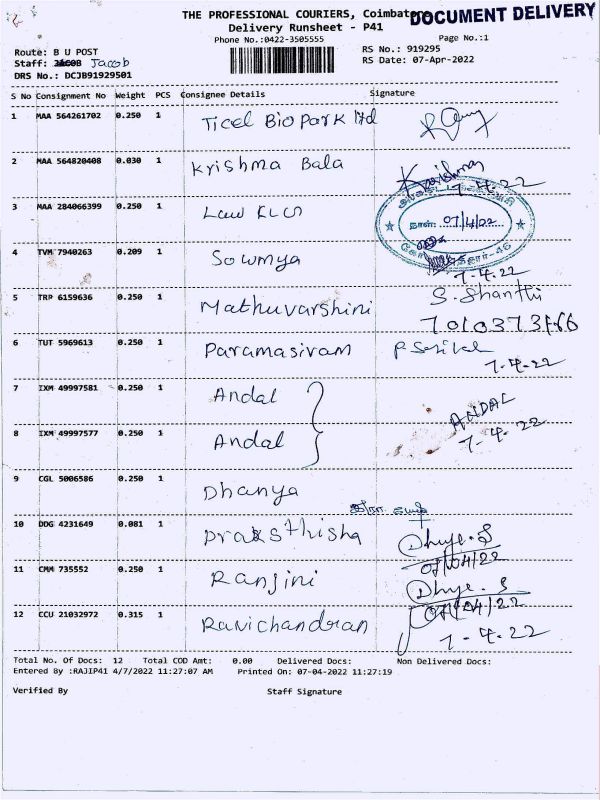 THE PROFESSIONAL COURIERS, Coimbatore
DOCUMENT DELIVERY
Delivery Runsheet - P41
Phone No.:0422-3505555
Page No.:1
Route: B U POST
RS No.: 919295
Staff: JACOB Jacob
RS Date: 07-Apr-2022
DRS No.: DCJB91929501
S No Consignment No Weight PCS Consignee Details Signature
1 MAA 564261702 0.250 1 Ticel Bio Park ltd
2 MAA 564820408 0.030 1 Krishma Bala Krishma
7-4.22
3 MAA 284066399 0.250 1 Law
நாள்: 07/4/22
4 TVM 7940263 0.209 1 Sowmya
7-4.22
5 TRP 6159636 0.250 1 Mathuvarshini S. Shanthi
6 TUT 5969613 0.250 1 Paramasivam
7-4.22
7 IXM 49997581 0.250 1 Andal ANDAL
8 IXM 49997577 0.250 1 Andal 7-4.22
9 CGL 5006586 0.250 1 Dhanya
10 DDG 4231649 0.081 1
07/04/22
11 CMM 735552 0.250 1 Ranjini
07/04/22
12 CCU 21032972 0.315 1 Ravichandran 7-4.22
Total No. Of Docs: 12 Total COD Amt: 0.00 Delivered Docs: Non Delivered Docs:
Entered By :RAJIP41 4/7/2022 11:27:07 AM Printed On: 07-04-2022 11:27:19
Verified By Staff Signature